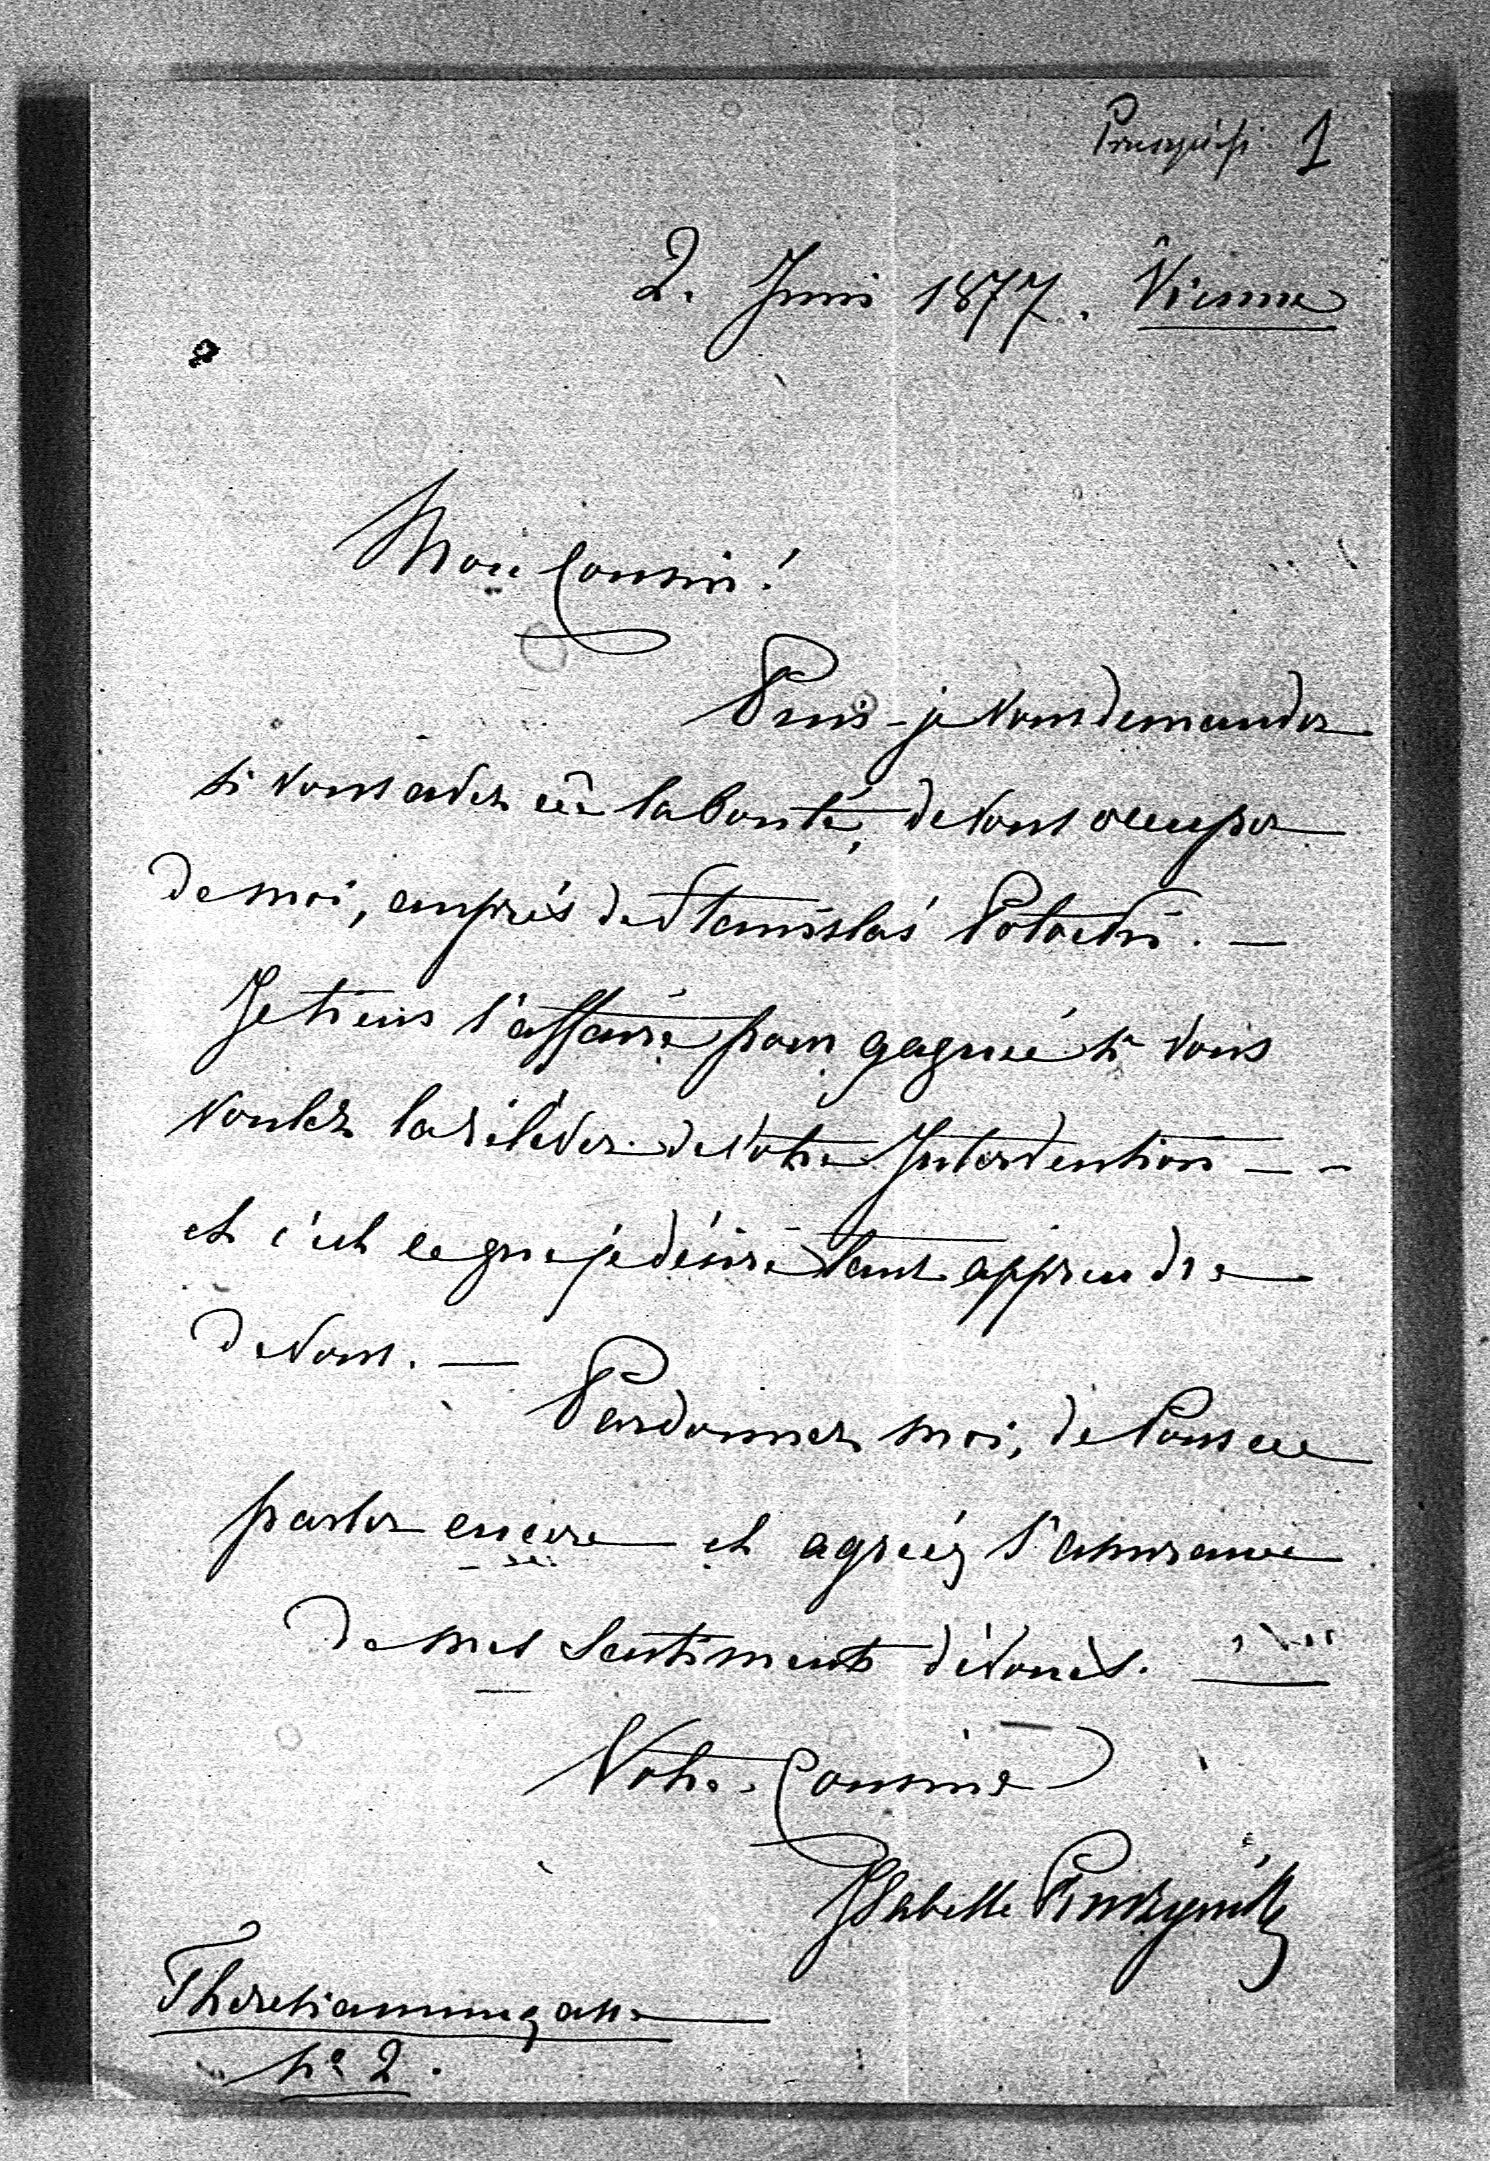 1
2. Juni 1877. Vienne
Mon Cousin!
Puis-je Vous demander
si Vous avez eû la bonté, de Vous occuper
de moi, auprés de Stanislas Potocki. —
Je tiens l'affaire pour gagnée si Vous
voulez la rélever de Votre Intervention — -
et c'est ce que je désire tant apprendre
de Vous. —
Pardonnez moi, de Vous en
parler encore et agréez l'assurance
de mes sentiments dévoués. —
Votre Cousine
Isabelle
Theresianumgasse
No 2.